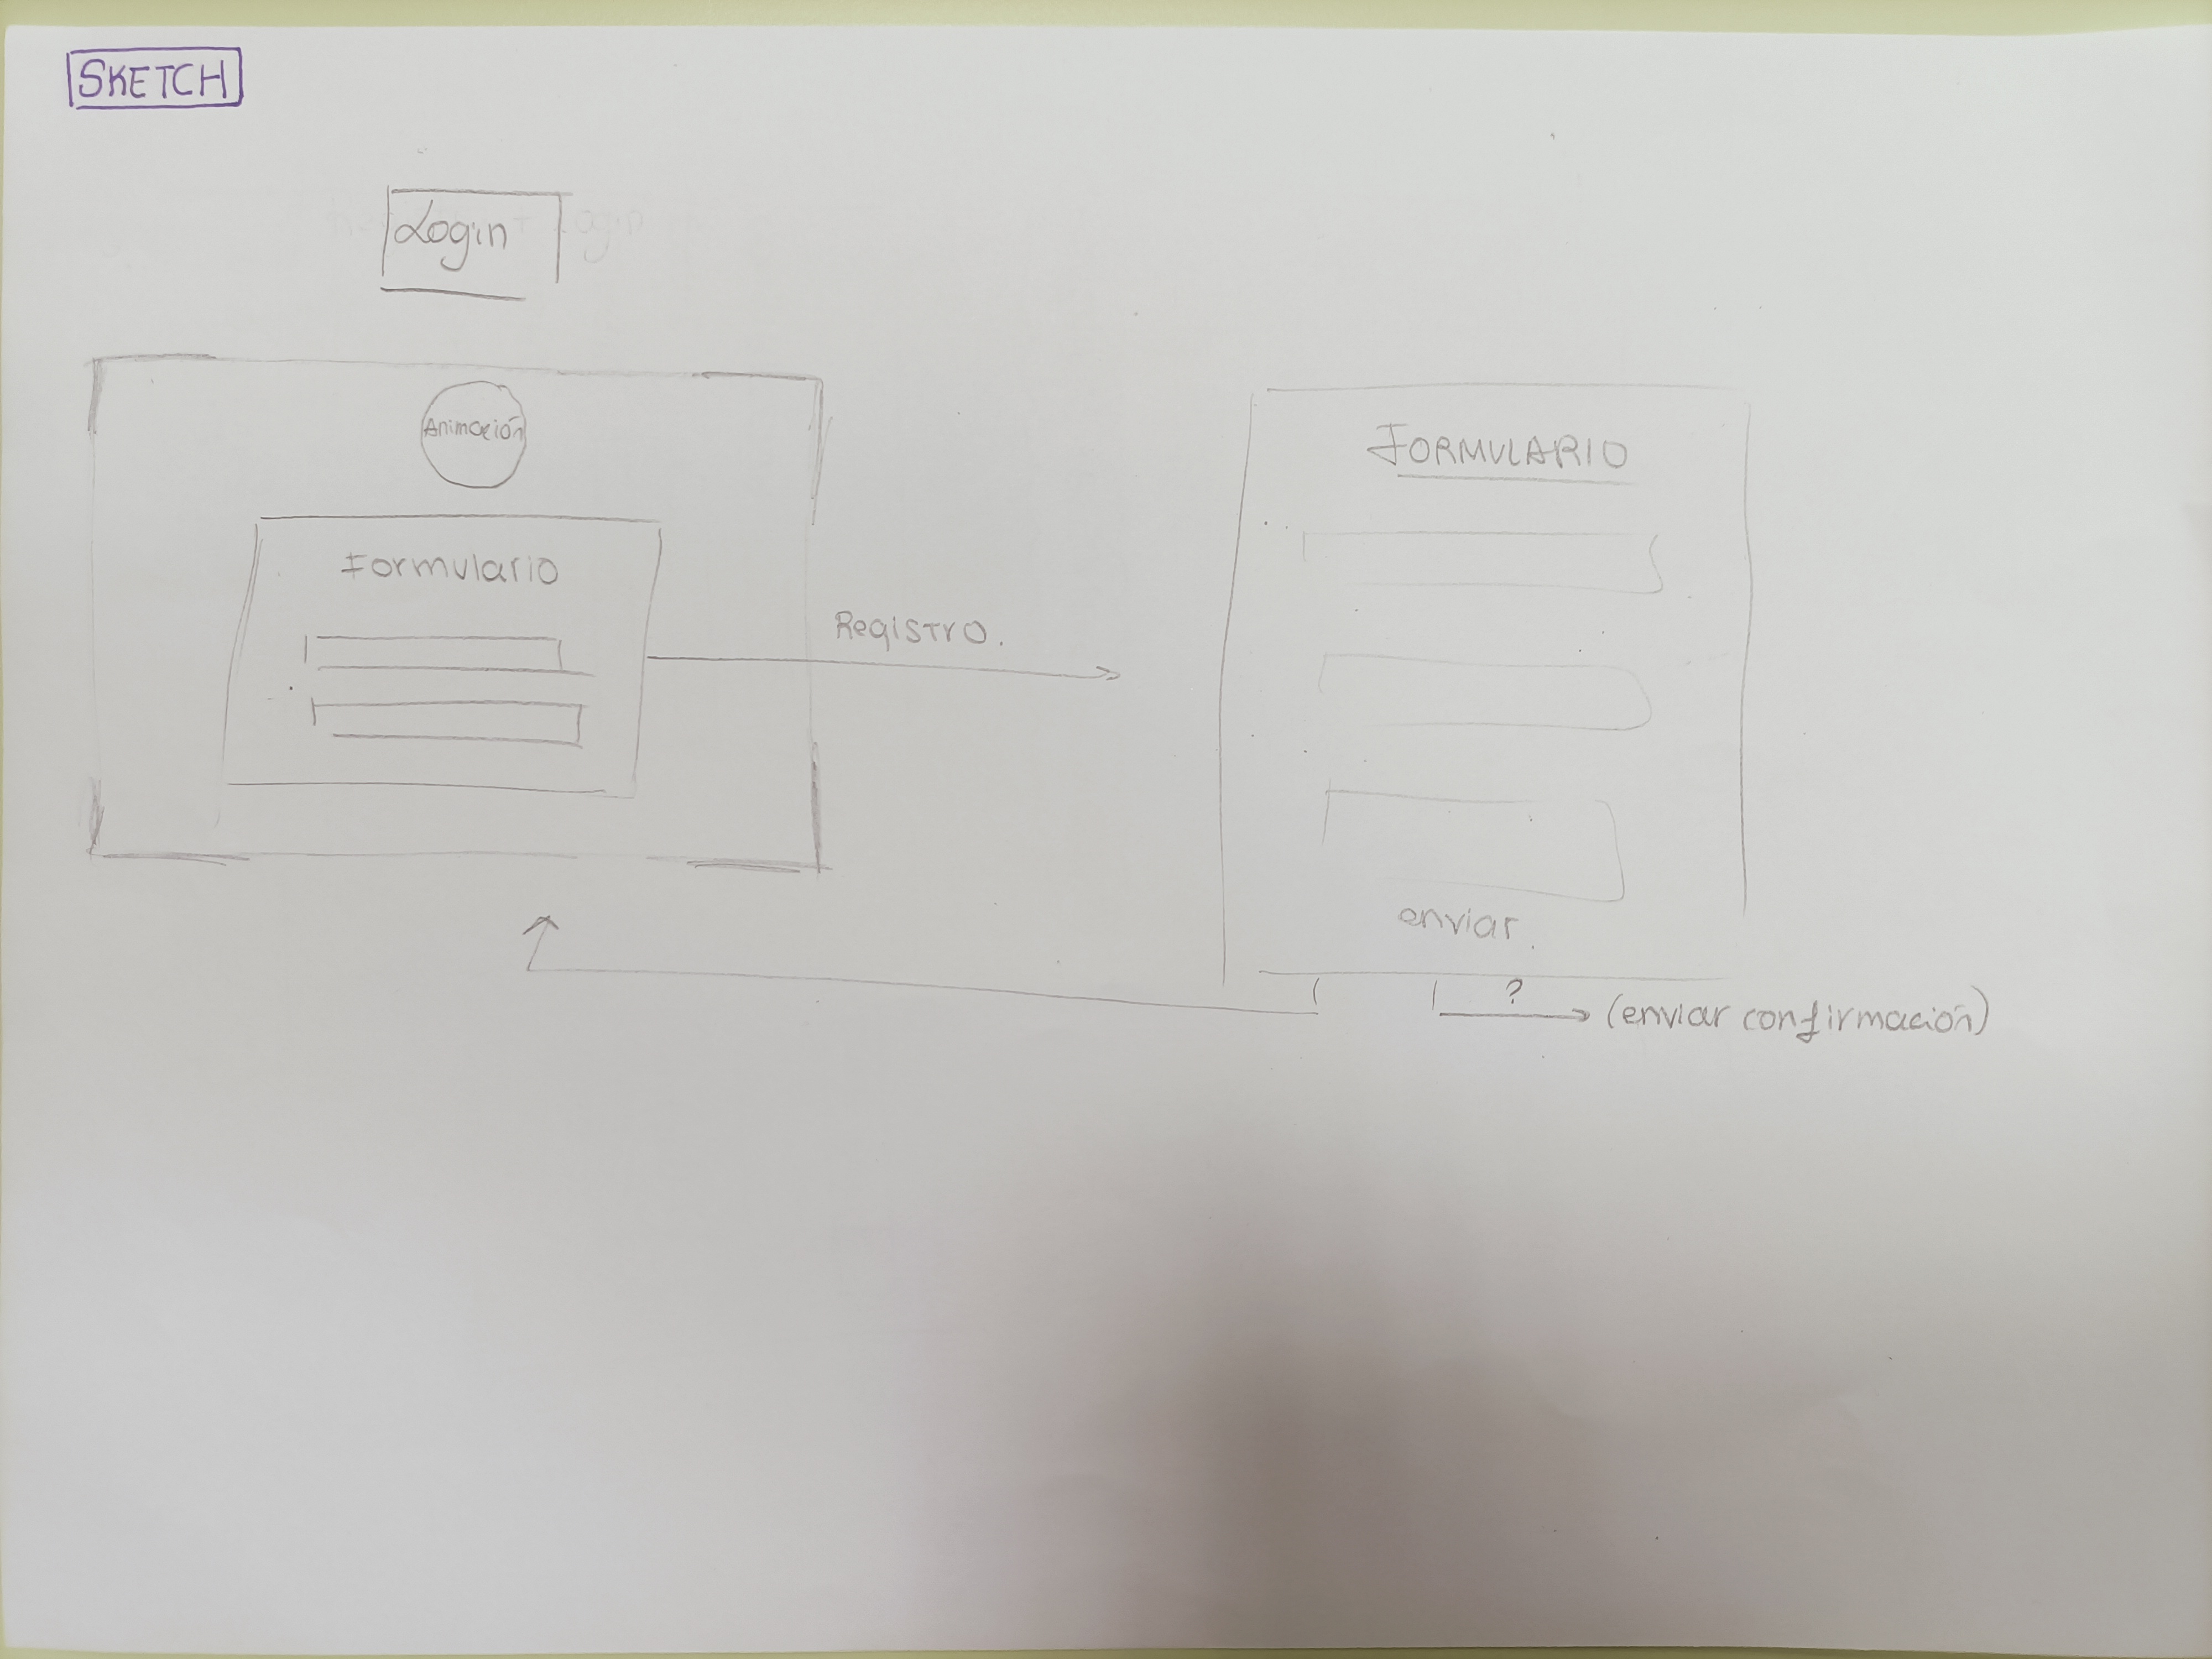 SKETCH
Login
Animación
Formulario
Registro.
FORMULARIO
enviar.
?
(enviar confirmación)